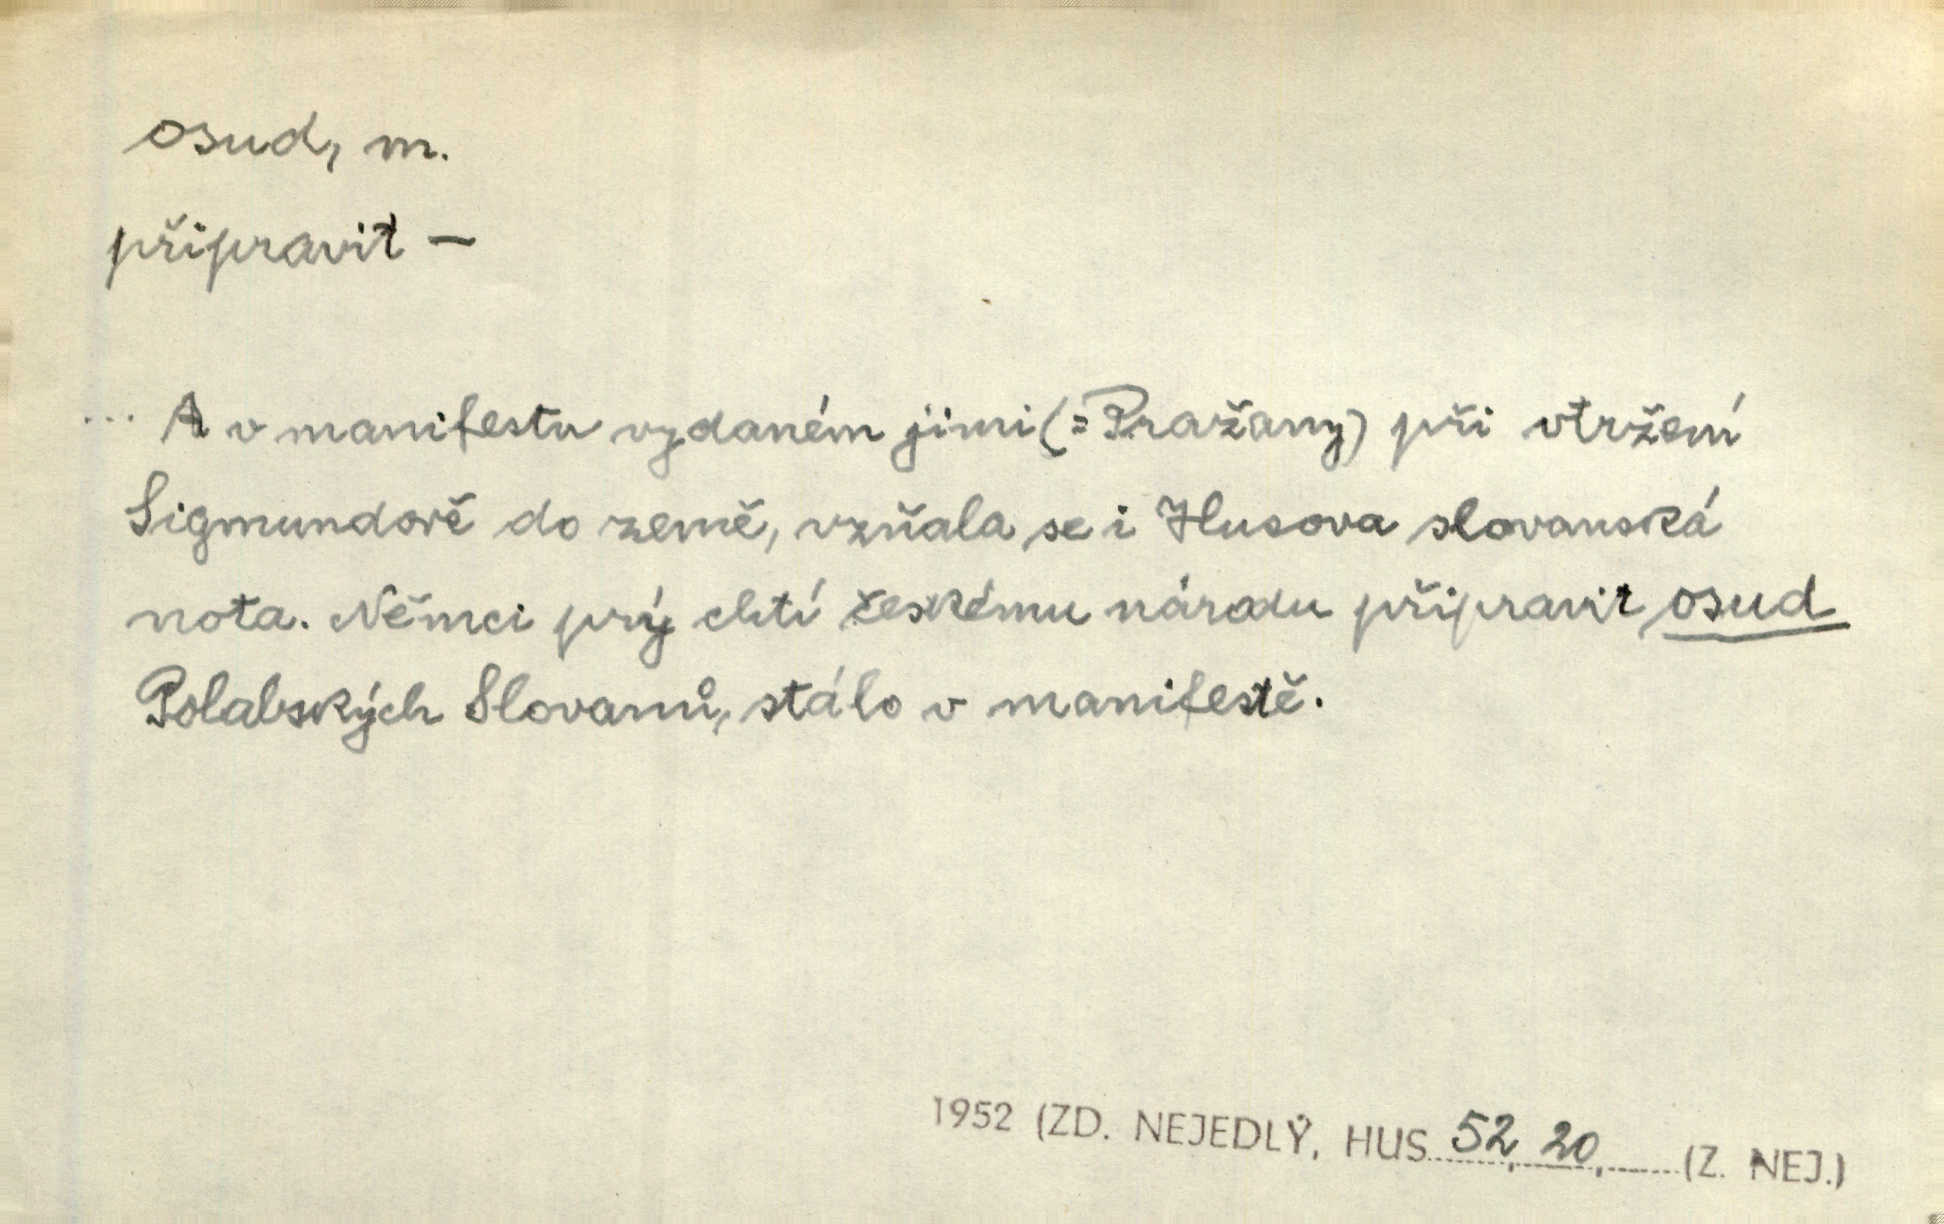 osud, m.
připravit —
... A v manifestu vydaném jimi (= Pražany) při vtržení
Sigmundově do země, vzňala se i Husova slovanská
nota. Němci prý chtí českému národu připravit osud
Polabských Slovanů, stálo v manifestě.
1952 (ZD. NEJEDLÝ, HUS 52, 20, (Z. NEJ.)